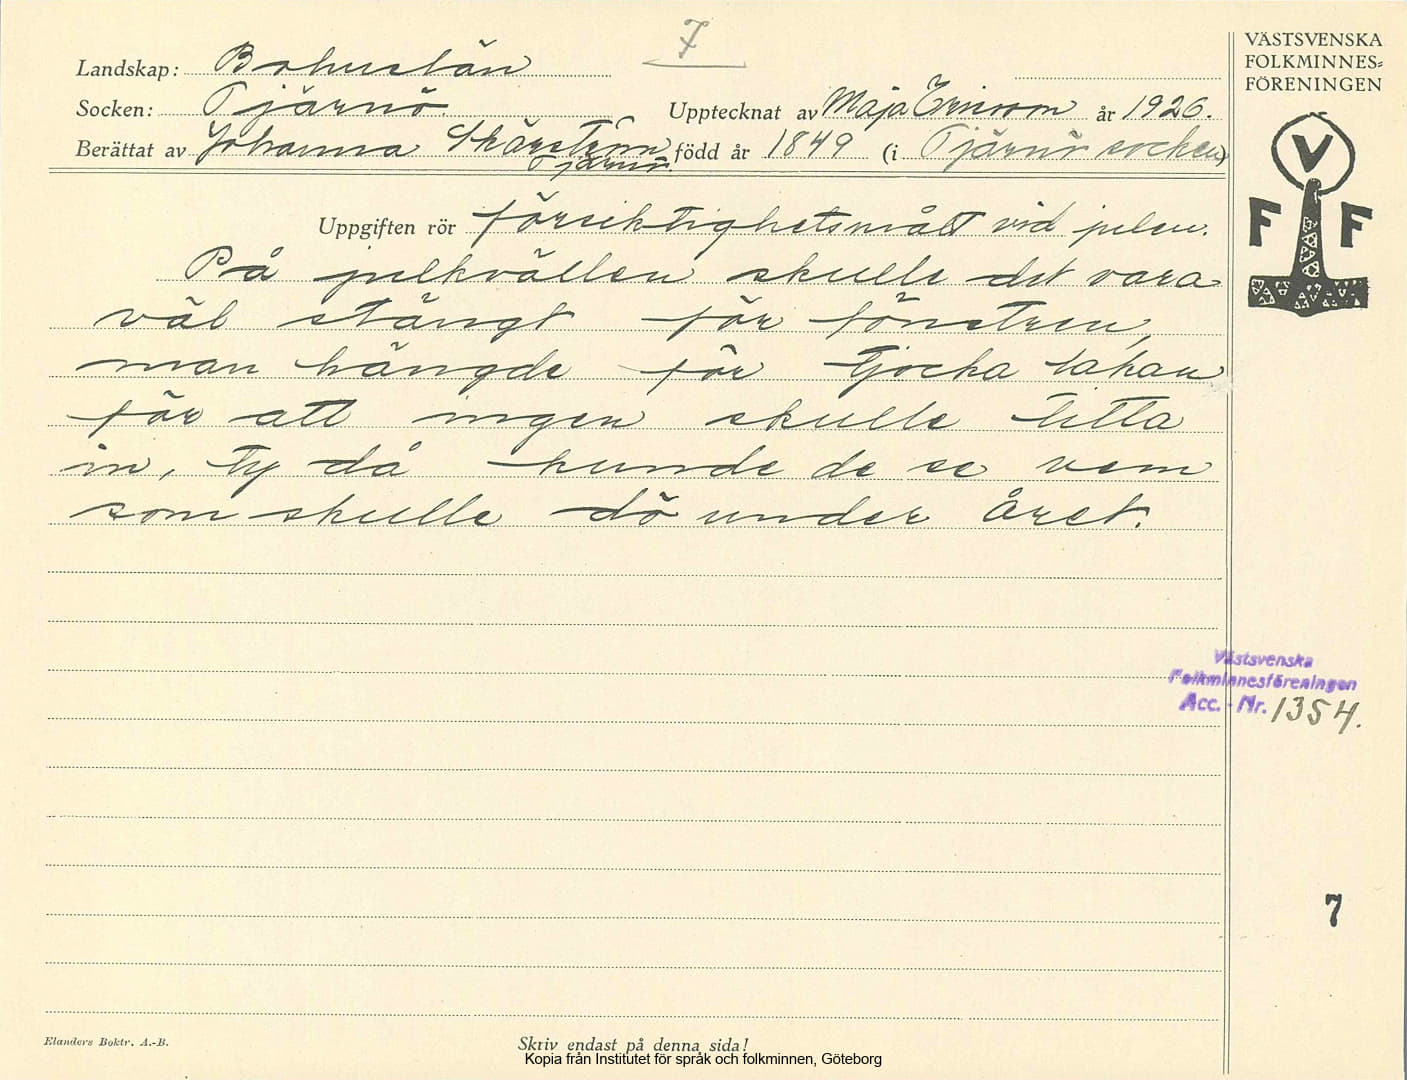 7
Landskap: Bohuslän
VÄSTSVENSKA
FOLKMINNES=
FÖRENINGEN
Socken: Tjärnö
Upptecknat av Maja Ericson år 1926.
Berättat av Johanna Skärström född år 1849 (i Tjärnö socken)
Tjärnö.
V
F F
Uppgiften rör försiktighetsmått vid julen.
På julkvällen skulle det vara
väl stängt för fönstren,
man hängde för tjocka lakan
för att ingen skulle titta
in, ty då kunde de se vem
som skulle dö under året.
Västsvenska
Folkminnesföreningen
Acc. - Nr. 1354.
7
Elanders Boktr. A.-B.
Skriv endast på denna sida!
Kopia från Institutet för språk och folkminnen, Göteborg